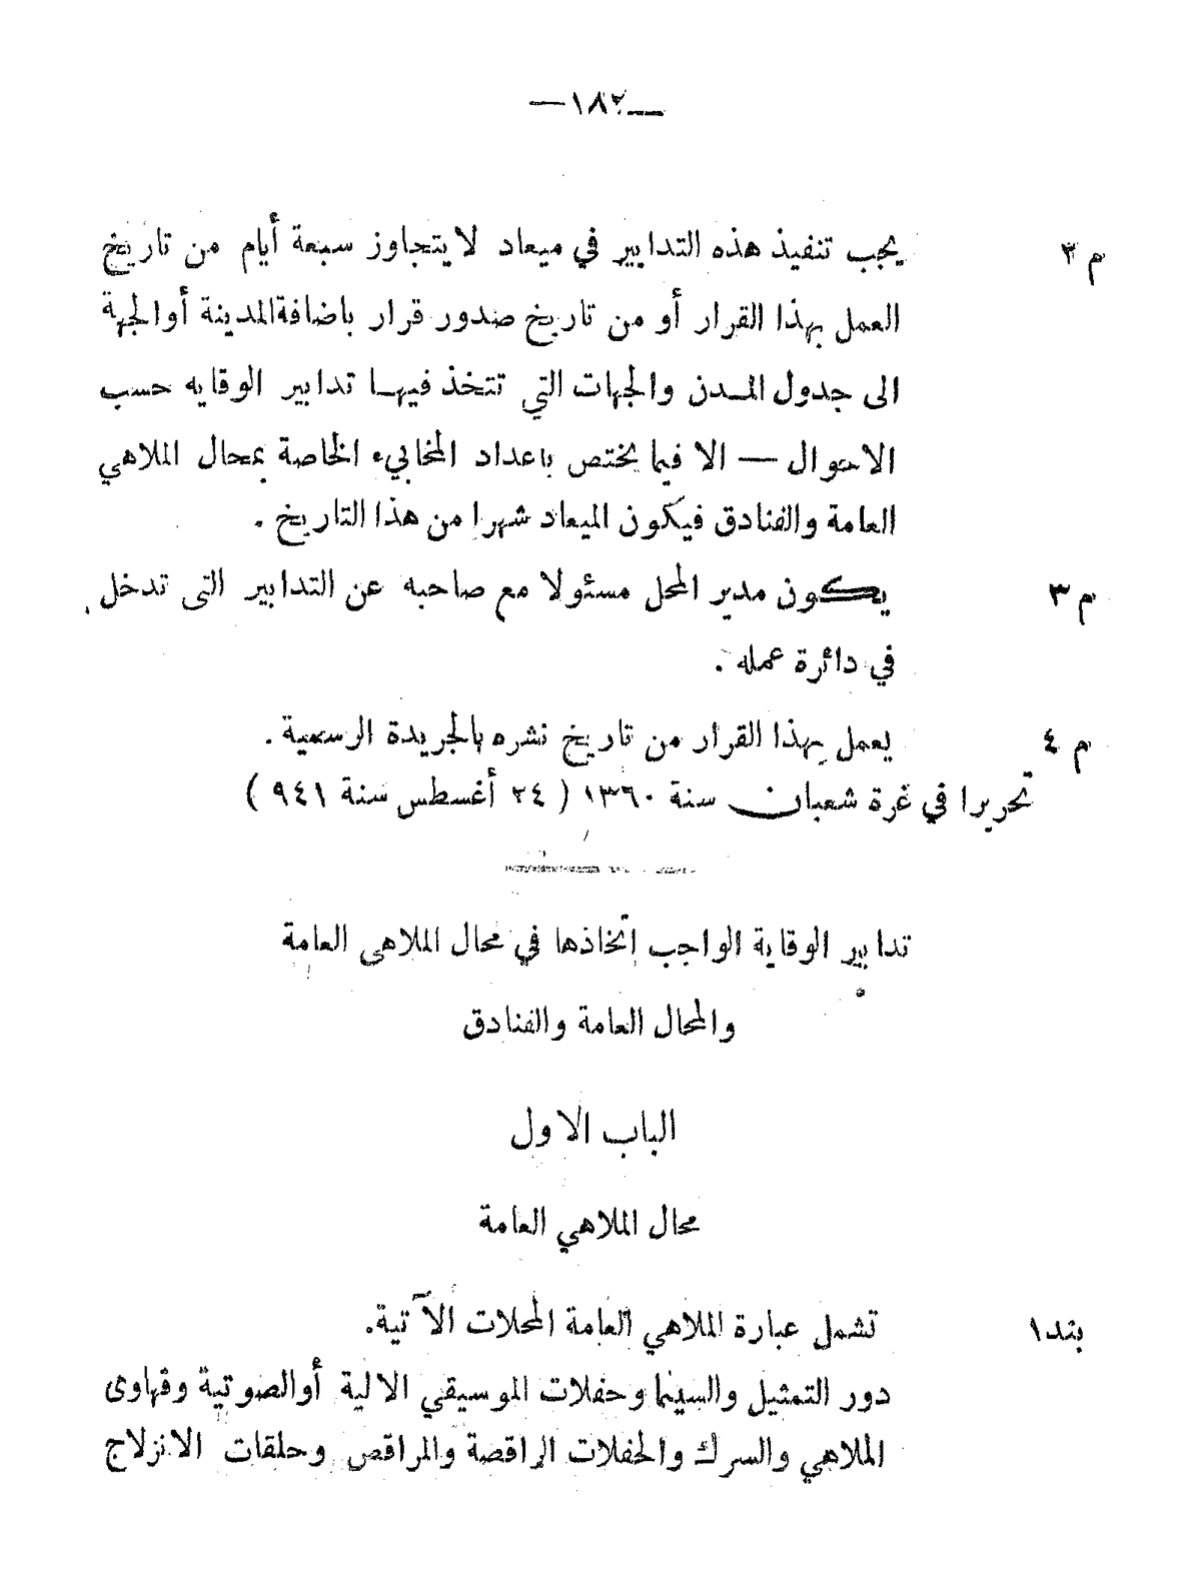 —١٨٢—
م ٢ يجب تنفيذ هذه التدابير في ميعاد لايتجاوز سبعة أيام من تاريخ
العمل بهذا القرار أو من تاريخ صدور قرار باضافةالمدينة أوالجهة
الى جدول المدن والجهات التي تتخذ فيها تدابير الوقايه حسب
الاحوال — الا فيما يختص باعداد المخابيء الخاصة بمحال الملاهي
العامة والفنادق فيكون الميعاد شهرا من هذا التاريخ .
م ٣ يكون مدير المحل مسئولا مع صاحبه عن التدابير التى تدخل
في دائرة عمله .
م ٤ يعمل بهذا القرار من تاريخ نشره بالجريدة الرسمية .
تحريرا في غرة شعبان سنة ١٣٦٠ ( ٢٤ أغسطس سنة ٩٤١ )
تدابير الوقاية الواجب إتخاذها في محال الملاهى العامة
والمحال العامة والفنادق
الباب الاول
محال الملاهي العامة
بند١ تشمل عبارة الملاهي العامة المحلات الآتية.
دور التمثيل والسينما وحفلات الموسيقي الالية أوالصوتية وقهاوى
الملاهي والسرك والحفلات الراقصة والمراقص وحلقات الانزلاج